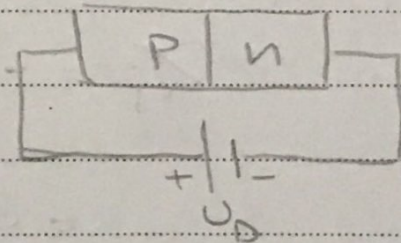 P n
+ -
U_D